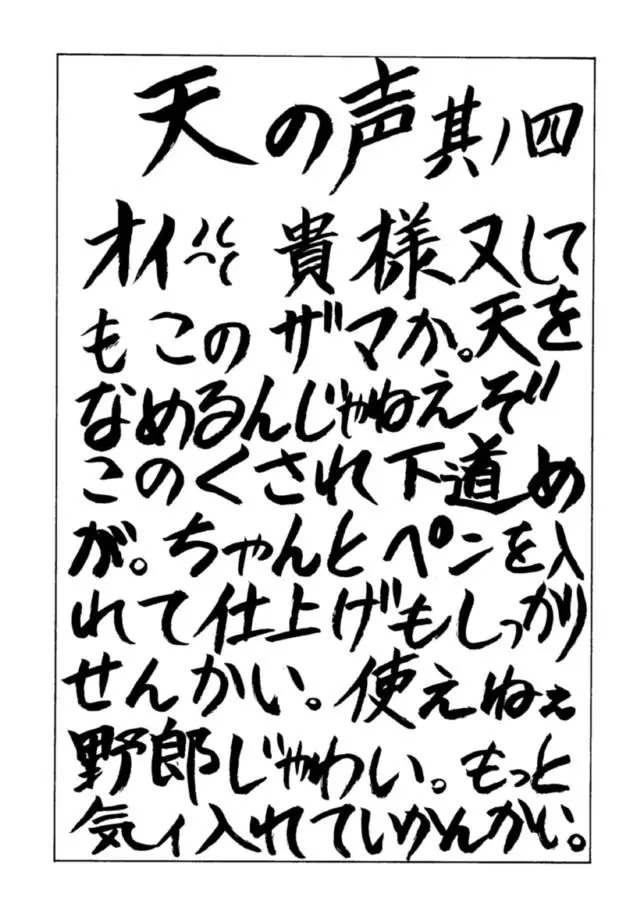 天の声其ノ四
オイ゛貴様又して
もこのザマか。天を
なめるんじゃねえぞ
このくされ下道め
が。ちゃんとペンを入
れて仕上げもしっかり
せんかい。使えねぇ
野郎じゃわい。もっと
気ィ入れていかんかい。